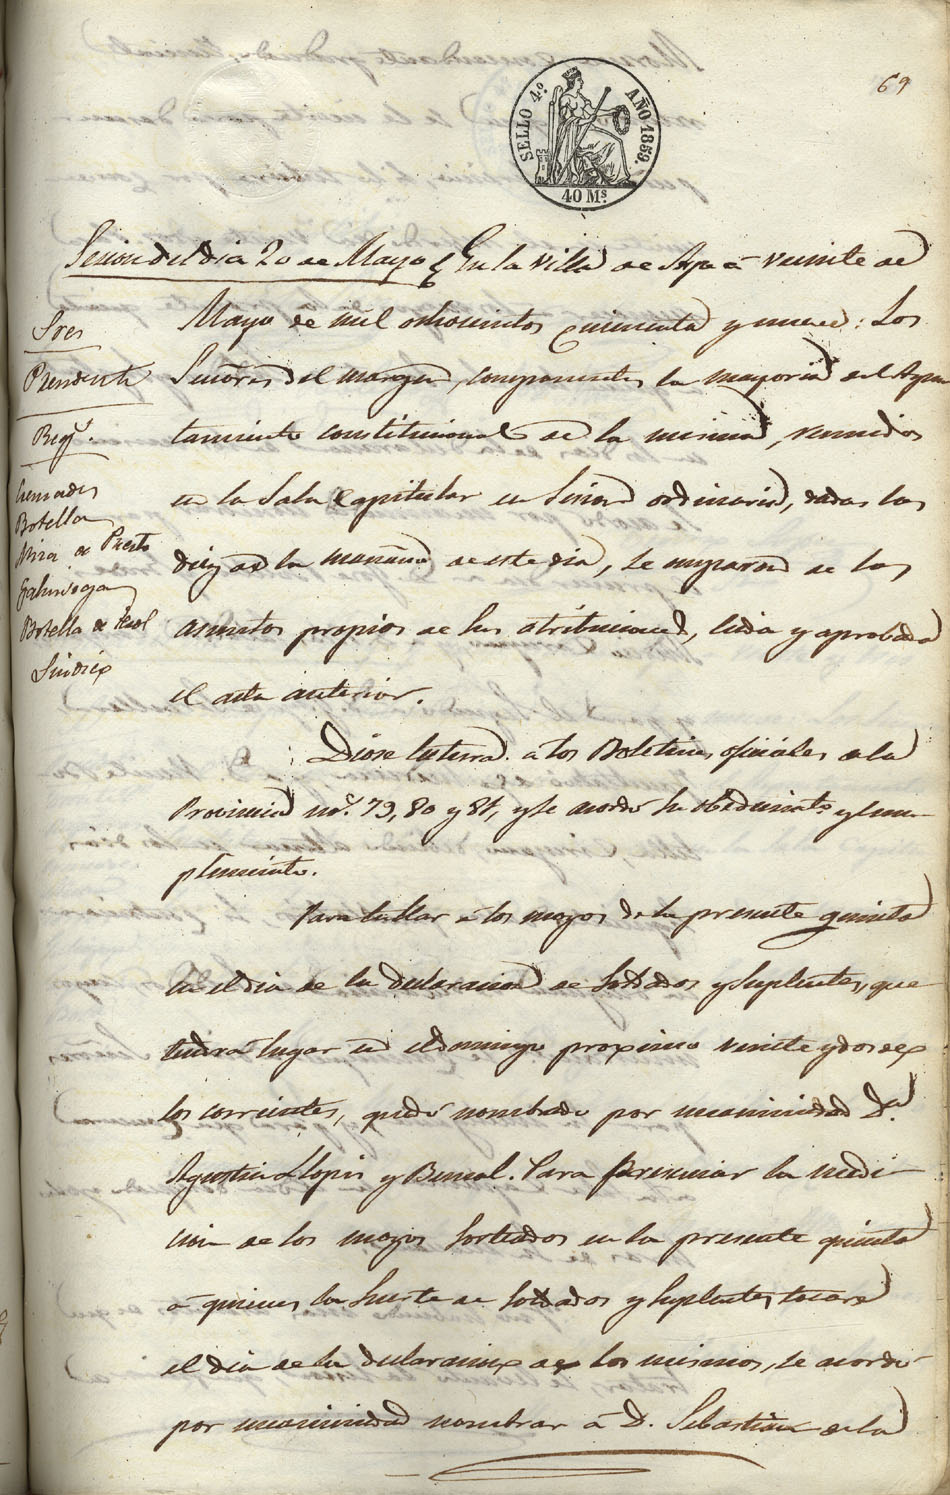 69
SELLO 4.º AÑO 1859.
40 Ms.
Sesion del dia 20 de Mayo En la villa de a veinte de
Mayo de mil ochocientos cincuenta y nueve: Los
Señores del margen, componentes la mayoria del Ayun
tamiento constitucional de la misma, reunidos
en la Sala Capitular en Sesion ordinaria, dadas las
diez de la mañana de este dia, se ocuparon de los
asuntos propios de sus atribuciones, leida y aprobada
el acta anterior.
Sres
Presidente
Reg.s
Botella
Mira de Puerto
Galvis
Botella de
Sindico
Diose lectura a los Boletines oficiales de la
Provincia nos. 79, 80 y 81, y se acordó su obedecimto. y cum-
plimiento.
Para tallar a los mozos de la presente quinta
en el dia de la declaracion de Soldados y Suplentes, que
tendra lugar en el domingo proximo veinte y dos de
los corrientes, quedó nombrado por unanimidad Dn.
Agustin Llopis y Bernal. Para presenciar la medi-
cion de los mozos sorteados en la presente quinta
a quienes la suerte de Soldados y Suplentes tocare
el dia de la declaracion de los mismos, se acordó
por unanimidad nombrar á D. Sebastian de la